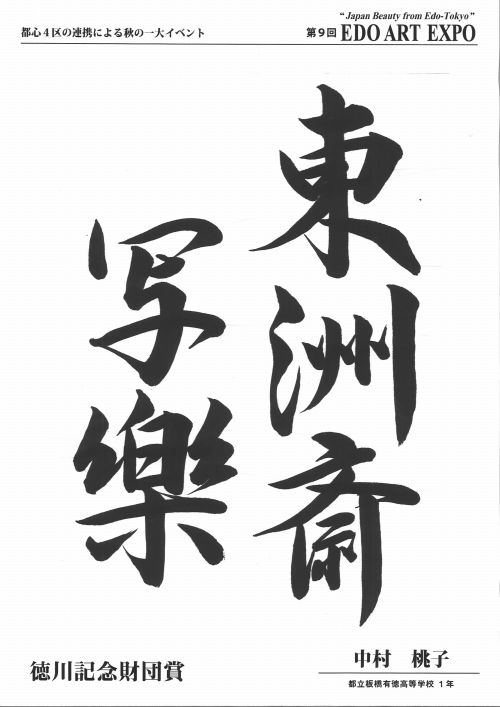 都心4区の連携による秋の一大イベント
"Japan Beauty from Edo-Tokyo"
第9回 EDO ART EXPO
東洲斎
写樂
徳川記念財団賞
中村 桃子
都立板橋有徳高等学校 1年